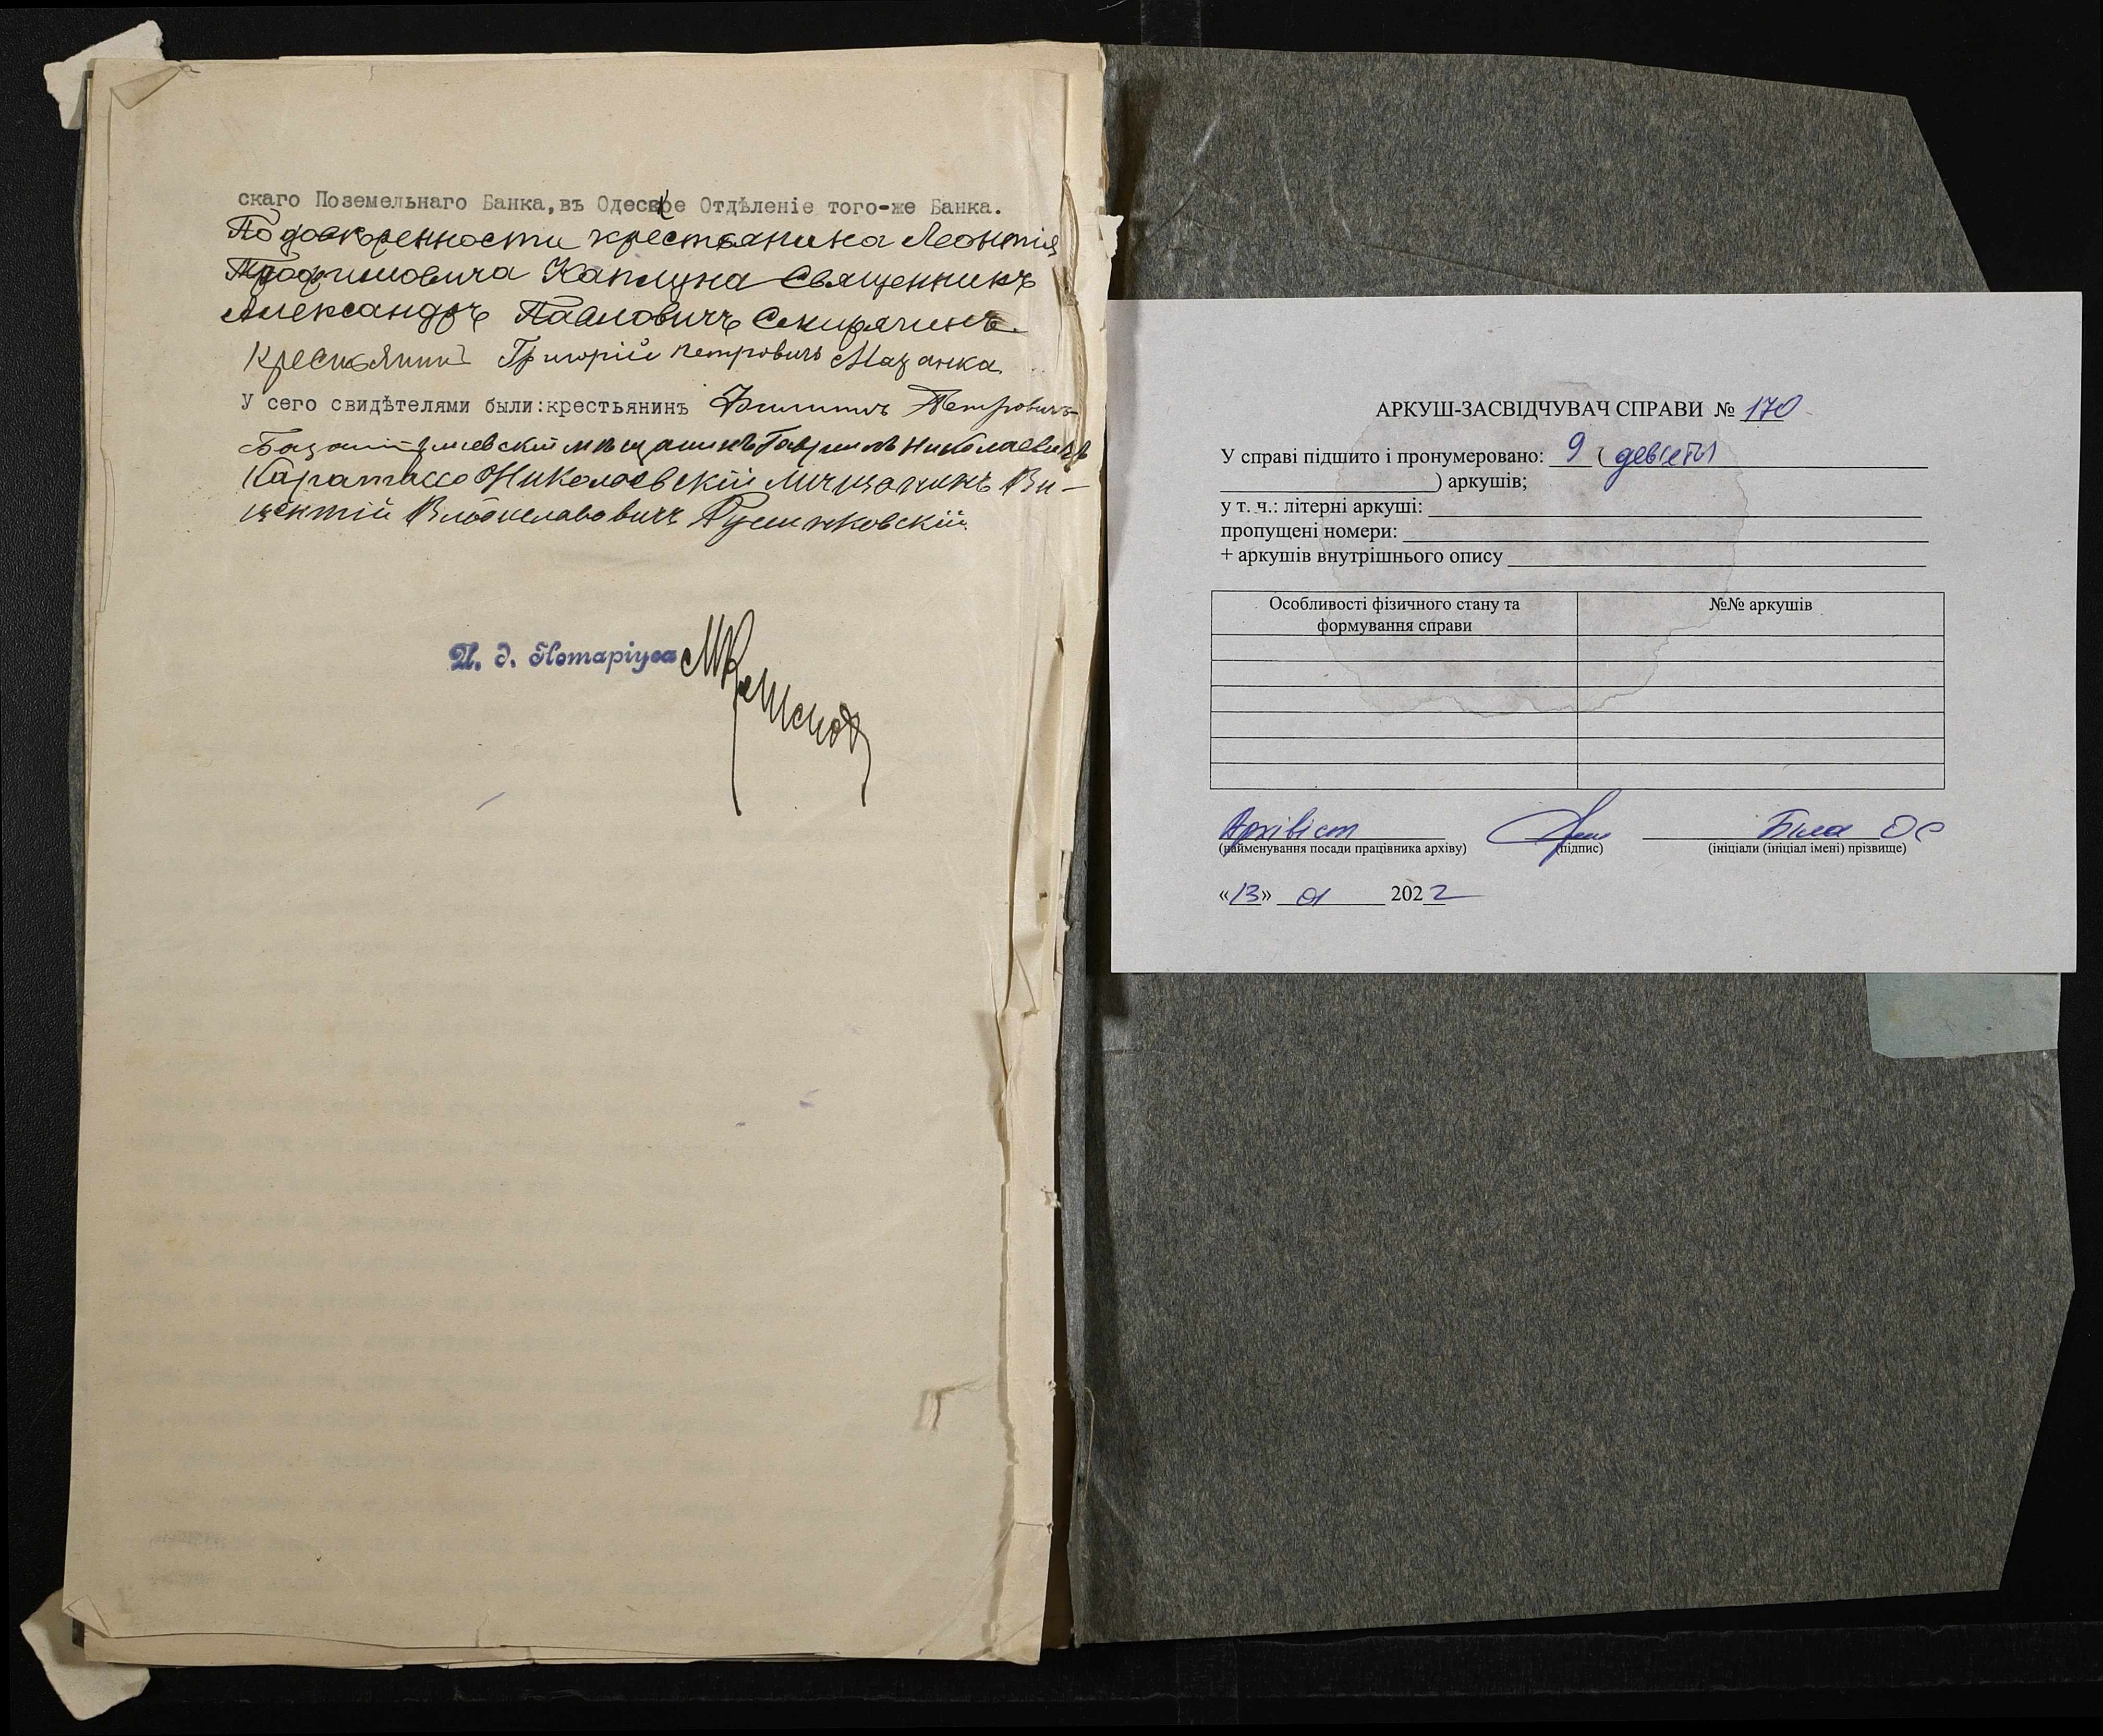 скаго Поземельнаго Банка, въ Одесское Отдѣленіе того-же Банка.
По довѣренности крестьянина Леонтія
Трофимовича Каплуна Священникъ
Александръ Павловичъ Секирячинъ.
Крестьянинъ Григорій Петровичъ Мазанка.
У сего свидѣтелями были: крестьянинъ Филиппъ Петровичъ
мѣщанинъ Гавриилъ Николаевичъ
Николаевскій Мѣщанинъ Ви-
центій
И. д. Нотаріуса
АРКУШ-ЗАСВІДЧУВАЧ СПРАВИ № 170
У справі підшито і пронумеровано: 9 ( девять
) аркушів;
у т. ч.: літерні аркуші:
пропущені номери:
+ аркушів внутрішнього опису
Особливості фізичного стану та №№ аркушів
формування справи
Архівіст Біла ОС
(найменування посади працівника архіву) (підпис) (ініціали (ініціал імені) прізвище)
«13» 01 2022